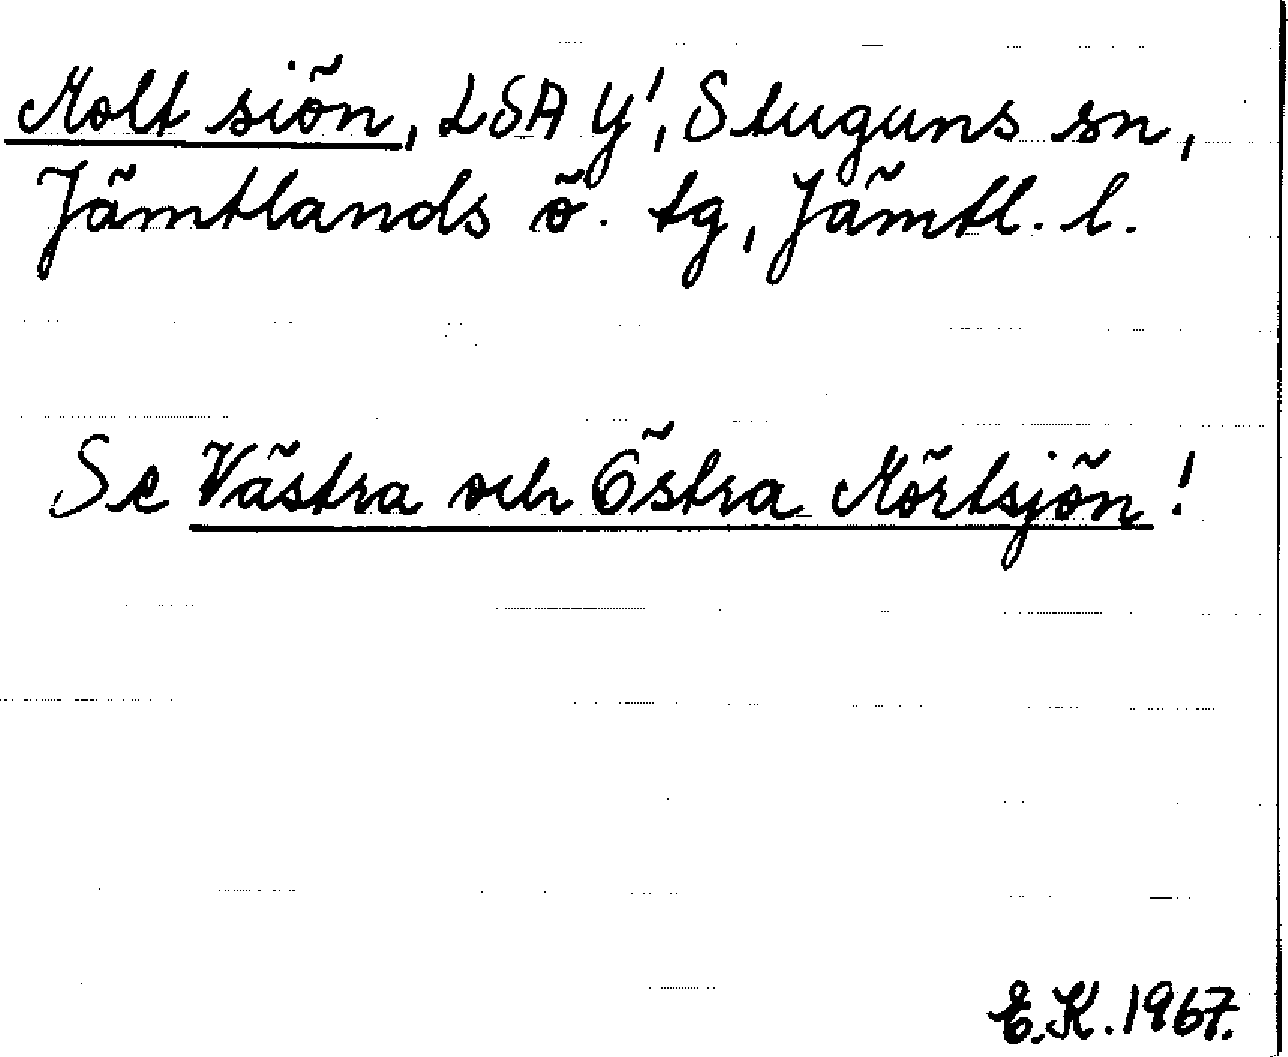 Molt siön, LSA Y', Stuguns sn,
Jämtlands ö. tg, Jämtl. l.
Se Västra och Östra Mörtsjön!
E.K. 1967.